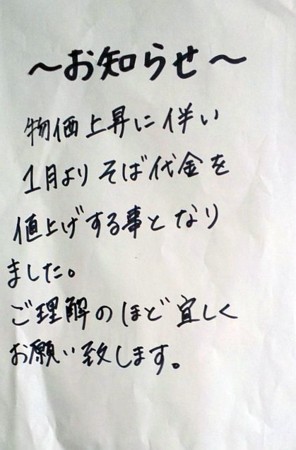 ～お知らせ～
物価上昇に伴い
1月よりそば代金を
値上げする事となり
ました。
ご理解のほど宜しく
お願い致します。